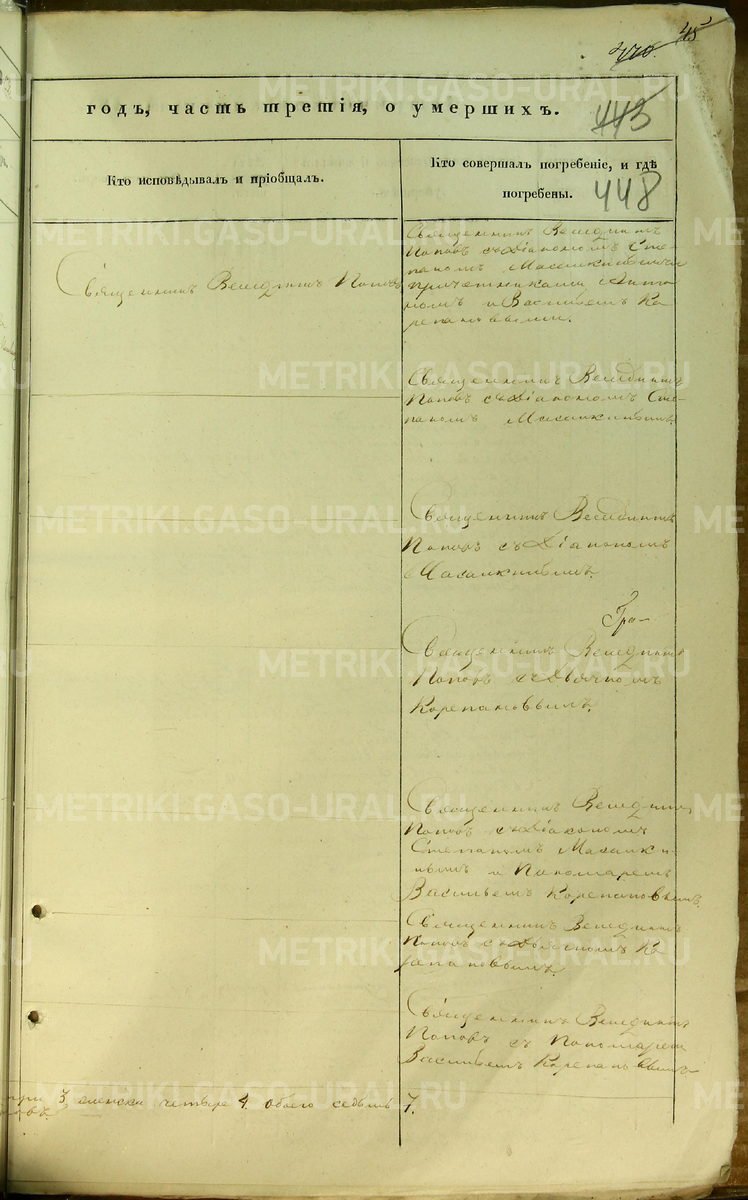 45
440.
годъ, часть третія, о умершихъ.
443
Кто исповѣдывалъ и пріобщалъ.
Кто совершалъ погребеніе, и гдѣ
погребены.
448
Священникъ Венедиктъ Поповъ
Священникъ Венедиктъ
Поповъ съ Діакономъ Сте-
паномъ
причетниками Анто
номъ и Васильемъ Ка
репановыми.
Священникъ Венедиктъ
Поповъ съ Діакономъ Сте-
паномъ
Священникъ Венедиктъ
Поповъ съ Діакономъ
Гра-
Священникъ Венедиктъ
Поповъ съ Дьячкомъ
Корепановымъ.
Священникъ Венедикт
Поповъ съ Діакономъ
Степаномъ
и Пономаремъ
Васильемъ Корепановымъ.
Священникъ Венедиктъ
Поповъ съ Дьячкомъ Ка
репановымъ.
Священникъ Венедиктъ
Поповъ съ Пономарем
Васильемъ Корепановымъ
3, женска четыре 4. обоего седьмъ 7.
METRIKI.GASO-URAL.RU